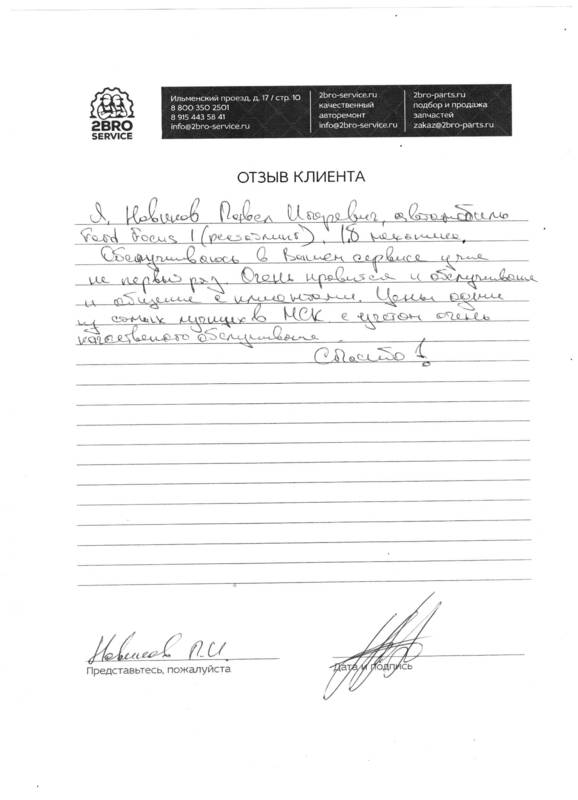 2BRO
SERVICE
Ильменский проезд, д. 17 / стр. 10
8 800 350 2501
8 915 443 58 41
info@2bro-service.ru
2bro-service.ru
качественный
авторемонт
info@2bro-service.ru
2bro-parts.ru
подбор и продажа
запчастей
zakaz@2bro-parts.ru
ОТЗЫВ КЛИЕНТА
Я, Новиков Павел Игоревич, автомобиль
Ford Focus 1 (рестайлинг), 1,8 механика.
Обслуживаюсь в Вашем сервисе уже
не первый раз. Очень нравится и обслуживание
и общение с клиентами. Цены одни
из самых лучших в МСК с учетом очень
качественого обслуживания.
Спасибо!
Новиков П.И.
Представьтесь, пожалуйста
Дата и подпись